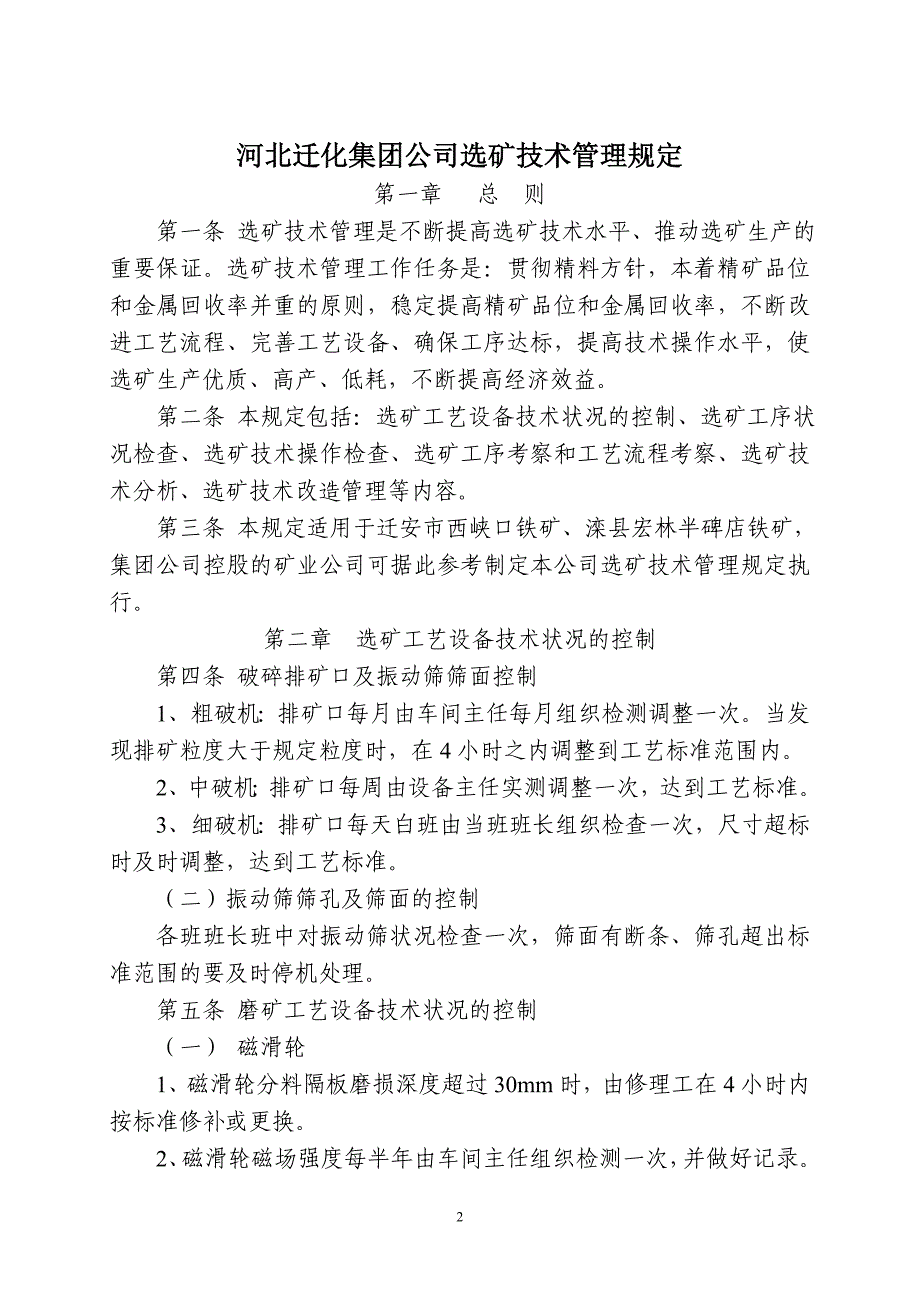 河北迁化集团公司选矿技术管理规定
第一章 总 则
第一条 选矿技术管理是不断提高选矿技术水平、推动选矿生产的
重要保证。选矿技术管理工作任务是：贯彻精料方针，本着精矿品位
和金属回收率并重的原则，稳定提高精矿品位和金属回收率，不断改
进工艺流程、完善工艺设备、确保工序达标，提高技术操作水平，使
选矿生产优质、高产、低耗，不断提高经济效益。
第二条 本规定包括：选矿工艺设备技术状况的控制、选矿工序状
况检查、选矿技术操作检查、选矿工序考察和工艺流程考察、选矿技
术分析、选矿技术改造管理等内容。
第三条 本规定适用于迁安市西峡口铁矿、滦县宏林半碑店铁矿，
集团公司控股的矿业公司可据此参考制定本公司选矿技术管理规定执
行。
第二章 选矿工艺设备技术状况的控制
第四条 破碎排矿口及振动筛筛面控制
1、粗破机：排矿口每月由车间主任每月组织检测调整一次。当发
现排矿粒度大于规定粒度时，在 4 小时之内调整到工艺标准范围内。
2、中破机：排矿口每周由设备主任实测调整一次，达到工艺标准。
3、细破机：排矿口每天白班由当班班长组织检查一次，尺寸超标
时及时调整，达到工艺标准。
（二）振动筛筛孔及筛面的控制
各班班长班中对振动筛状况检查一次，筛面有断条、筛孔超出标
准范围的要及时停机处理。
第五条 磨矿工艺设备技术状况的控制
（一） 磁滑轮
1、磁滑轮分料隔板磨损深度超过 30mm 时，由修理工在 4 小时内
按标准修补或更换。
2、磁滑轮磁场强度每半年由车间主任组织检测一次，并做好记录。
2